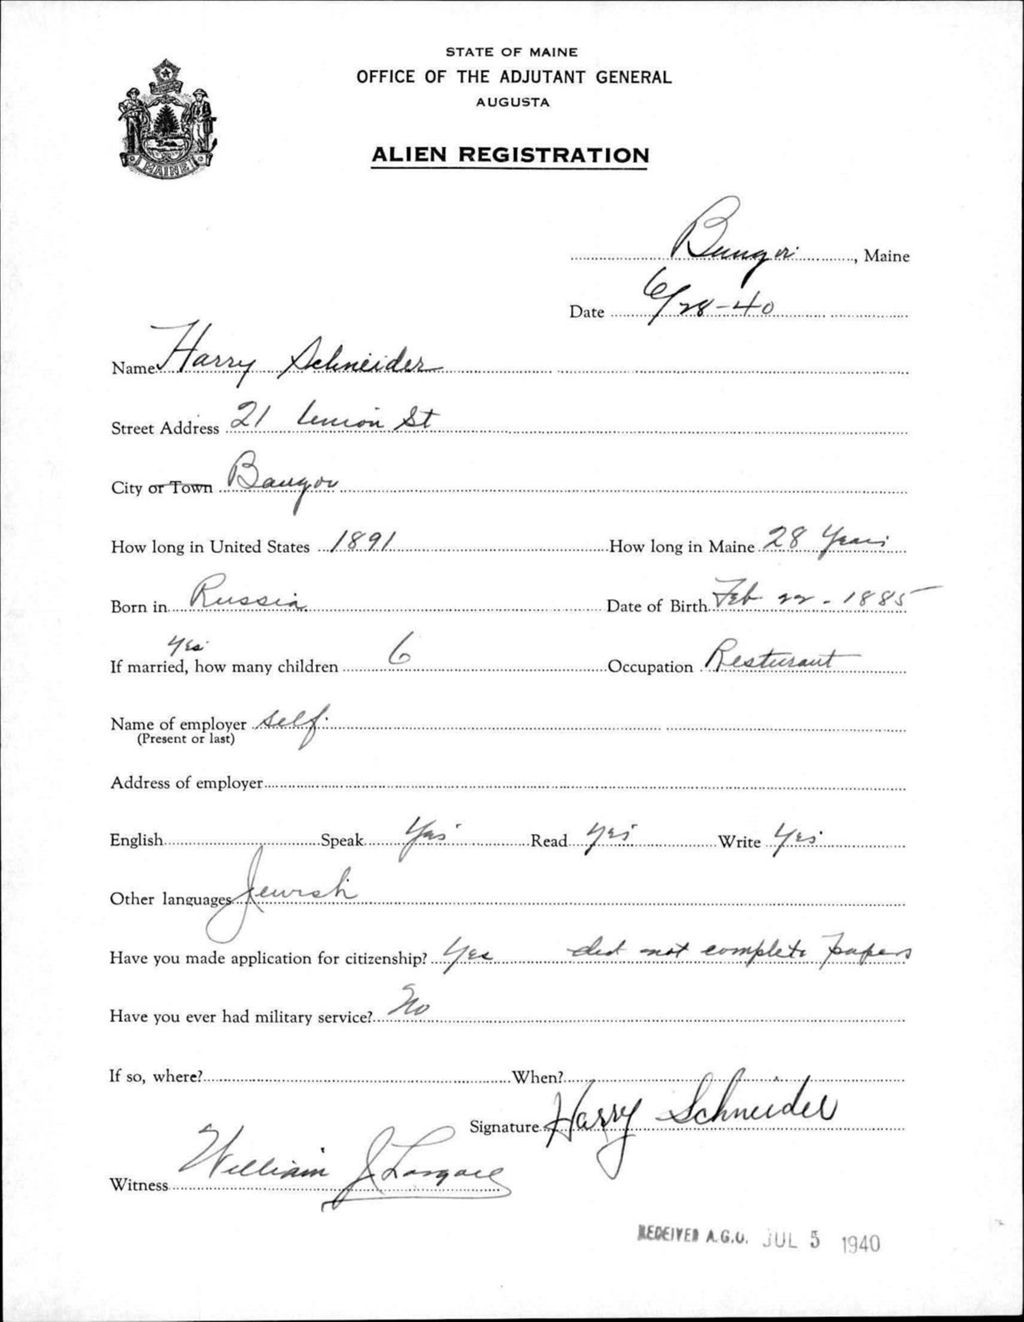 STATE OF MAINE
OFFICE OF THE ADJUTANT GENERAL
AUGUSTA
ALIEN REGISTRATION
MAINE
Bangor, Maine
Date 6/28-40
Name Harry Schneider
Street Address 21 Union St
City or Town Bangor
How long in United States 1891 How long in Maine 28 Years
Born in Russia Date of Birth Feb 22 - 1885
Yes
If married, how many children 6 Occupation Resturant
Name of employer self.
(Present or last)
Address of employer
English Speak Yes Read Yes Write Yes
Other languages Jewish
Have you made application for citizenship? Yes did not complete papers
Have you ever had military service? No
If so, where? When?
Signature Harry Schneider
Witness William J
RECEIVED A.G.O. JUL 5 1940